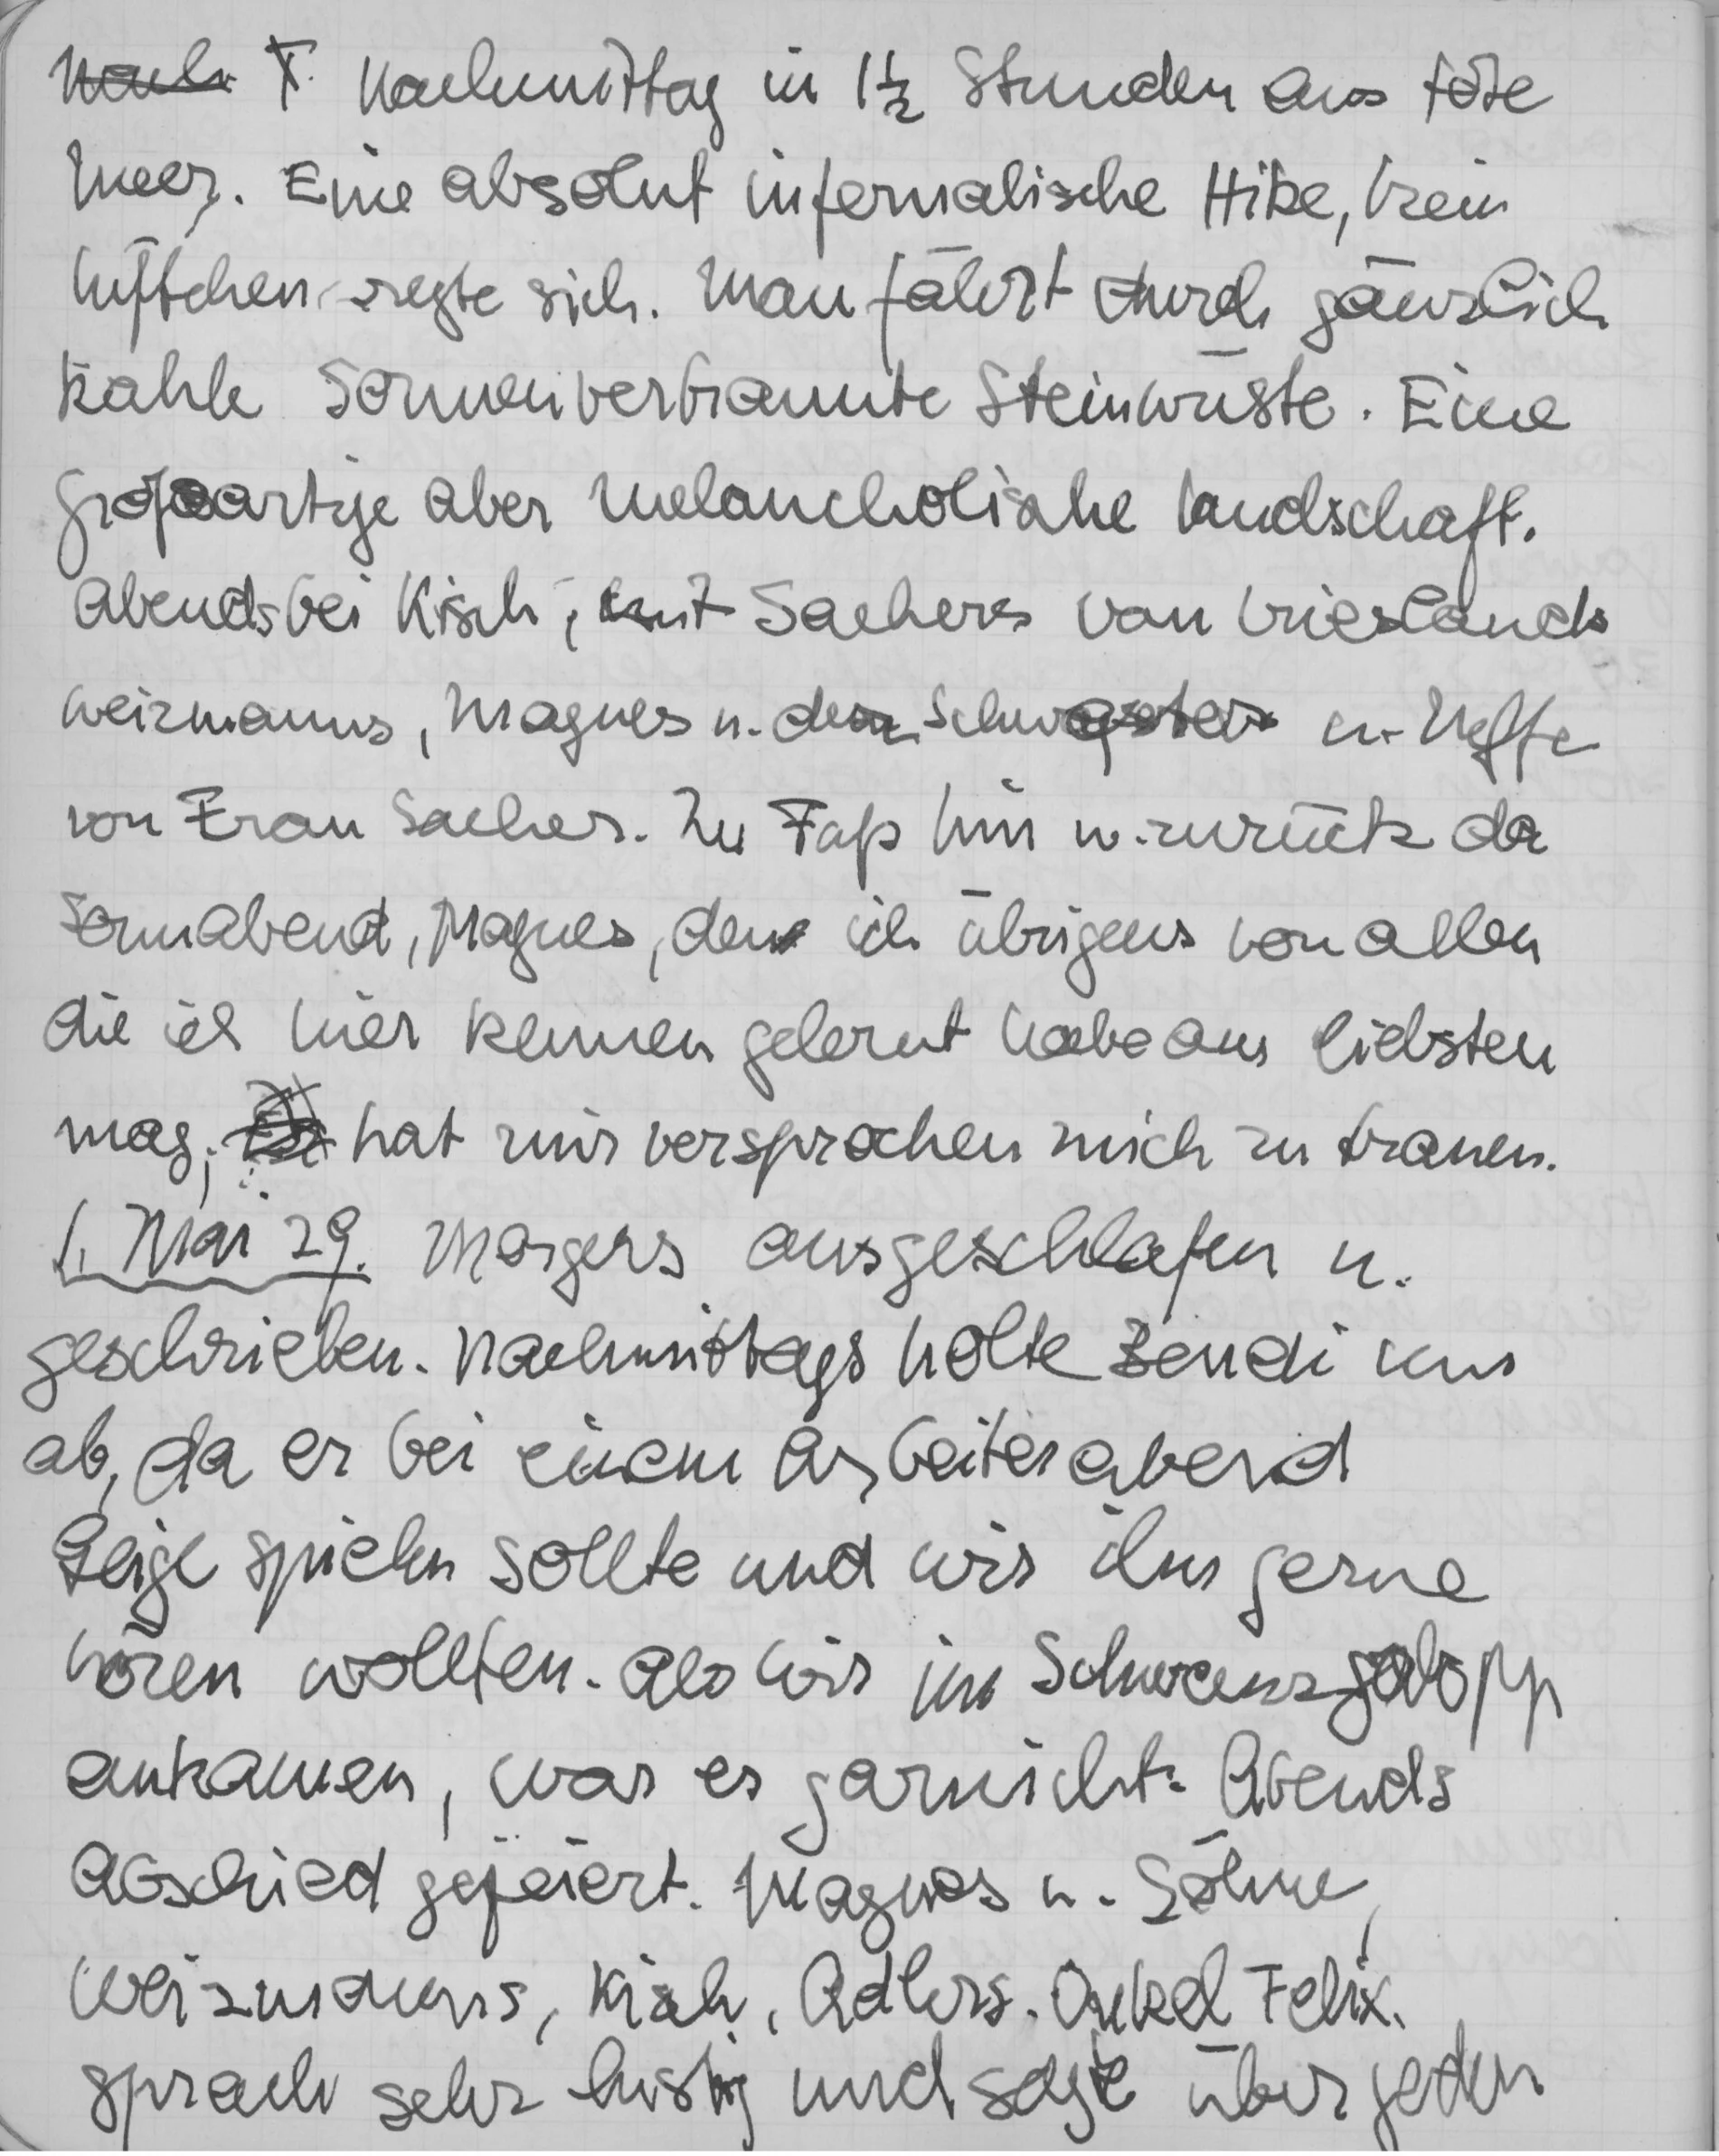 Nach F. Nachmittag in 1½ Stunden ans tote
Meer. Eine absolut infernalische Hitze, kein
Lüftchen regte sich. Man fährt durch gänzlich
kahle Sonnenverbrannte Steinwüste. Eine
großartige aber melancholische Landschaft.
Abends bei Kisch, mit Sachers van Vrieslands
Weizmanns, Magnes u. dem Schwester u. Neffe
von Frau Sacher. Zu Fuß hin u. zurück da
Sonnabend, Magnes, den ich übrigens von allen
die ich hier kennen gelernt habe am liebsten
mag, hat mir versprochen mich zu trauen.
1. Mai 29. Morgens ausgeschlafen u.
geschrieben. Nachmittags holte Bendi uns
ab, da er bei einem Arbeiterabend
Geige spielen sollte und wir ihn gerne
hören wollten. Als wir im Schweinsgalopp
ankamen, war es garnicht. Abends
Abschied gefeiert. Magnes u. Söhne,
Weizmanns, Kisch, Adlers. Onkel Felix.
sprach sehr lustig und sagte über jeden